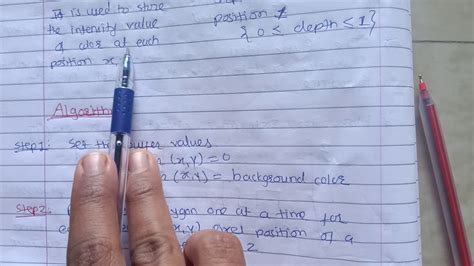 It is used to store
the intensity value
of color at each
position x,
position z
{0 ≤ depth ≤ 1}
Algorith
Step1: Set the buffer values
(x,y) = 0
(x,y) = background color
Step2: one at a time for
(x,y) pixel position of a
z